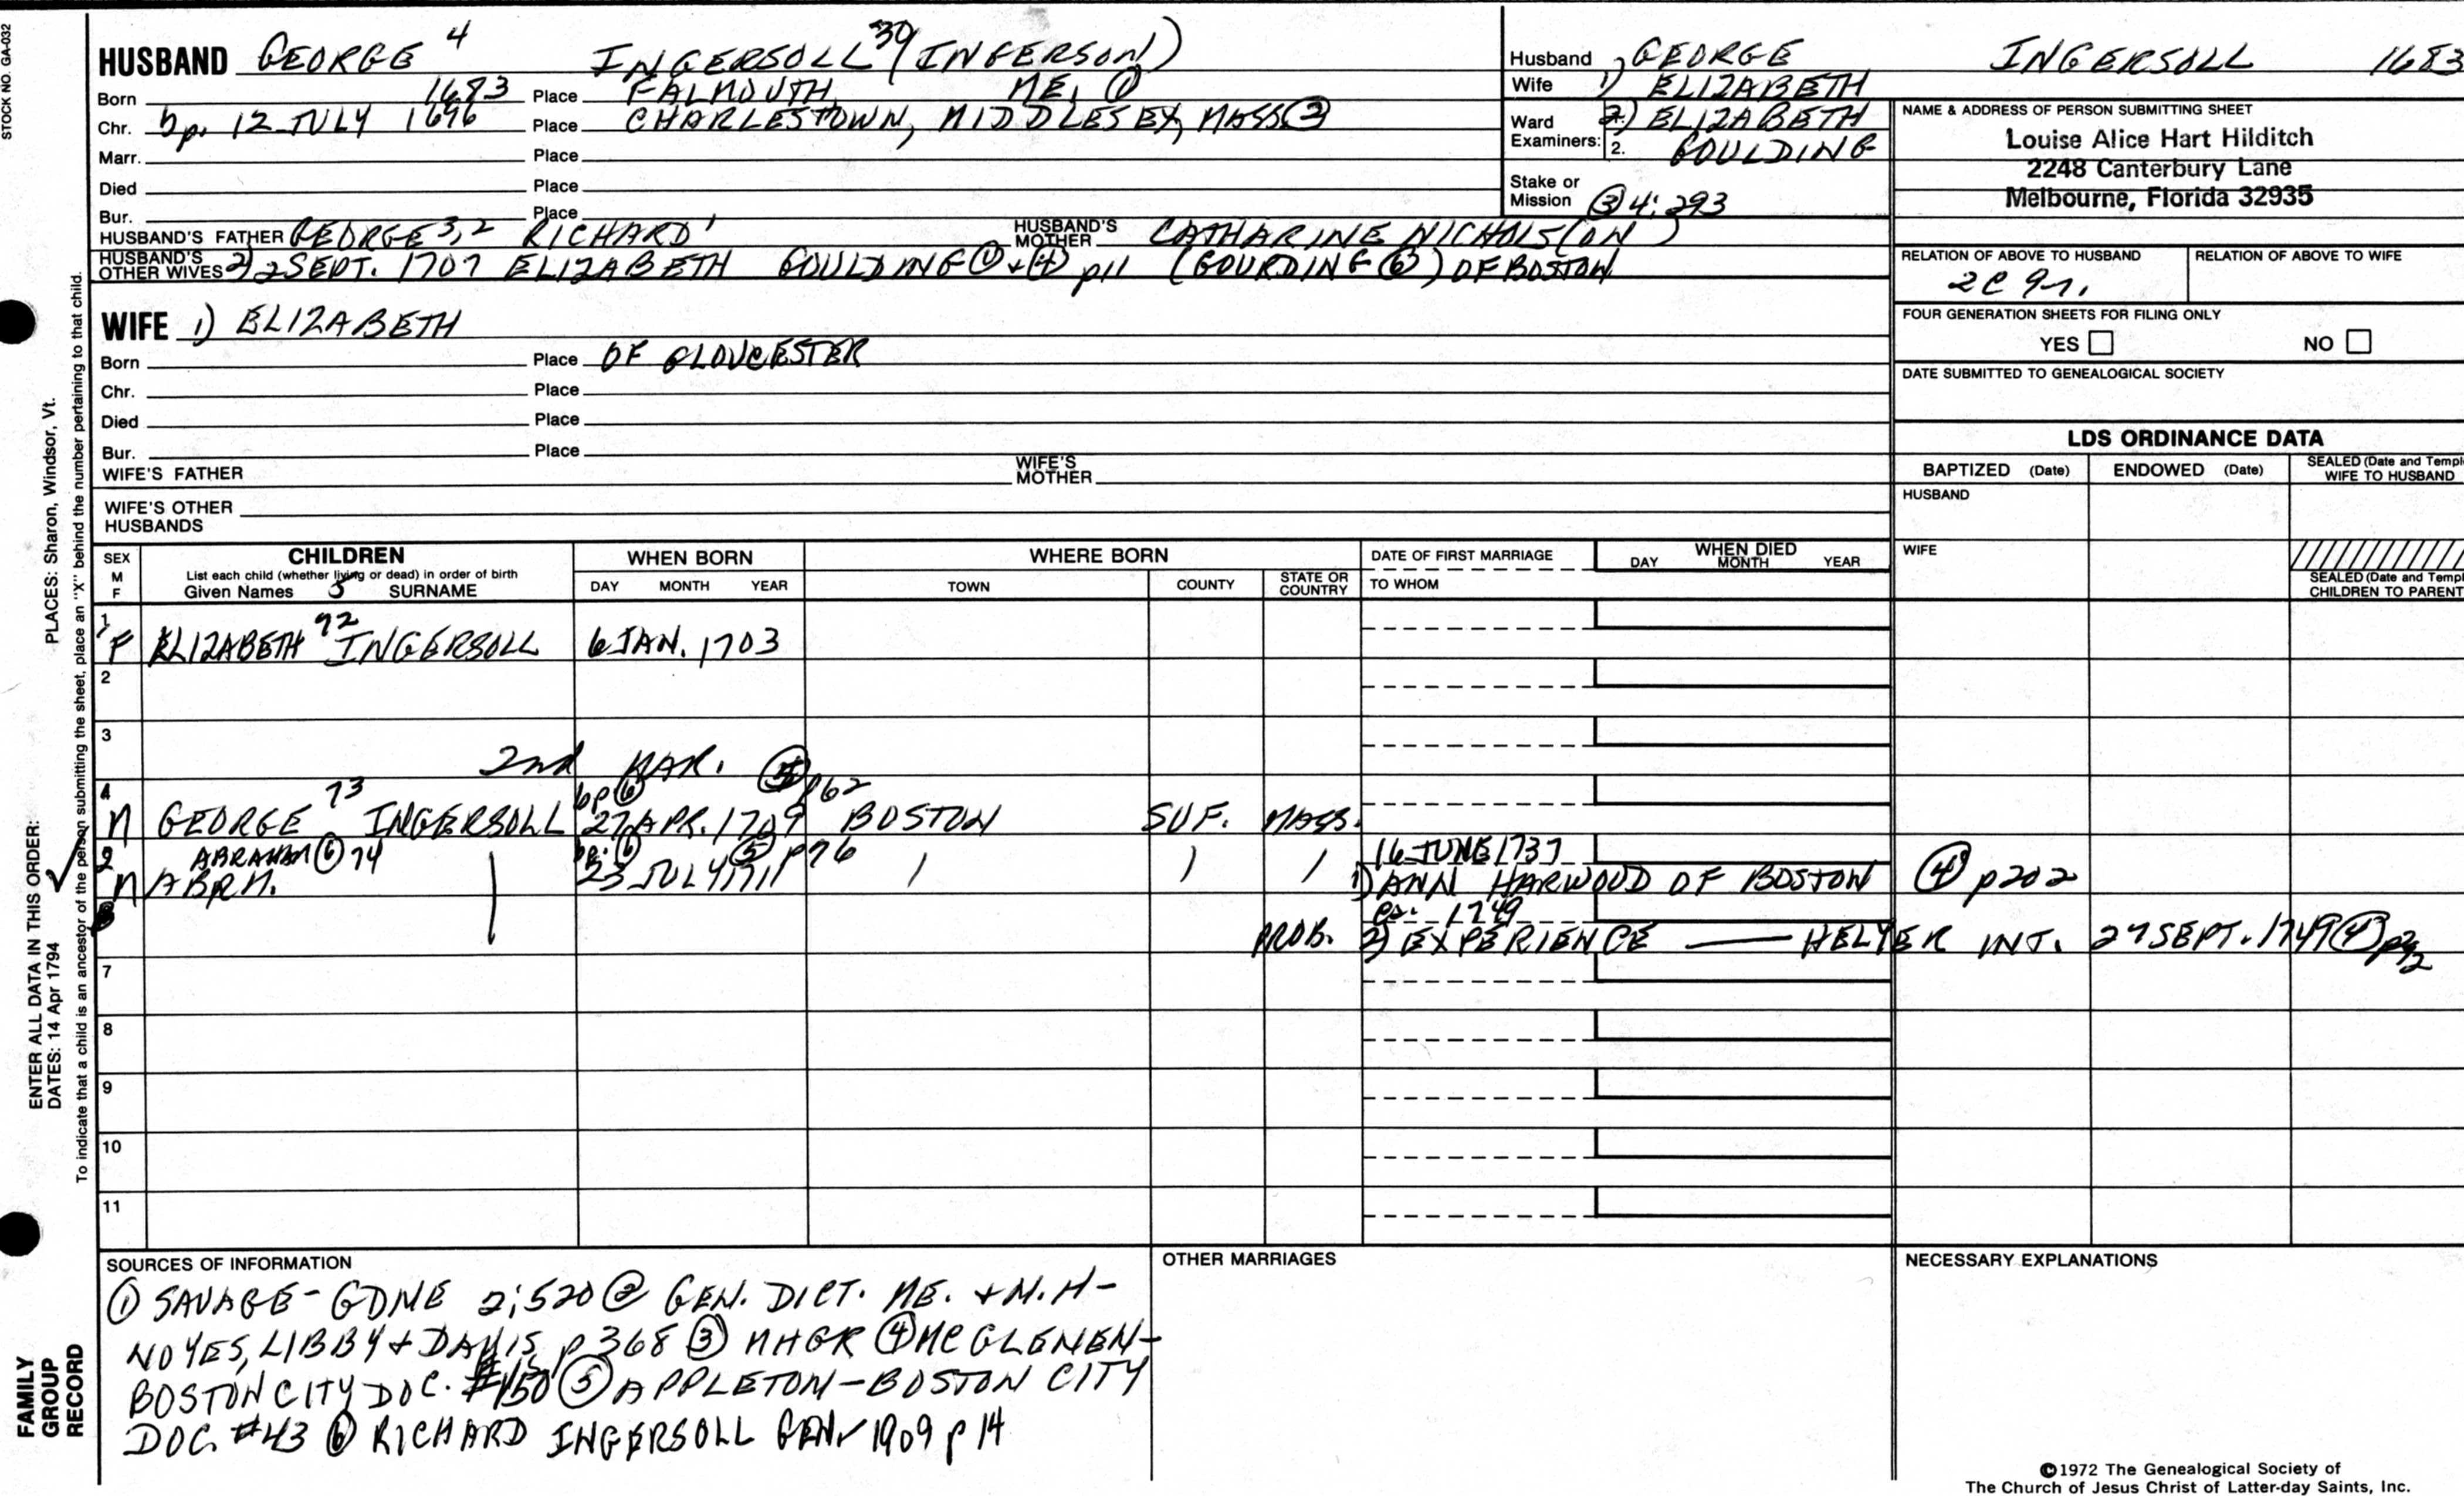 STOCK NO. GA-032
HUSBAND GEORGE 4 INGERSOLL 30 (INGERSON)
Born 1683 Place FALMOUTH, ME. ①
Chr. bp. 12 JULY 1696 Place CHARLESTOWN, MIDDLESEX, MASS ③
Marr. Place
Died Place
Bur. Place
HUSBAND'S FATHER GEORGE 3,2 RICHARD 1 HUSBAND'S MOTHER CATHARINE NICHOLS(ON)
HUSBAND'S OTHER WIVES 2) 2 SEPT. 1707 ELIZABETH GOULDING ① + ④ p11 (GOURDING ⑥) OF BOSTON
Husband GEORGE INGERSOLL 1683
Wife 1) ELIZABETH
Ward 2) ELIZABETH
Examiners: 2. GOULDING
Stake or
Mission ③ 4:293
NAME & ADDRESS OF PERSON SUBMITTING SHEET
Louise Alice Hart Hilditch
2248 Canterbury Lane
Melbourne, Florida 32935
RELATION OF ABOVE TO HUSBAND RELATION OF ABOVE TO WIFE
2C 9r.
FOUR GENERATION SHEETS FOR FILING ONLY
YES NO
DATE SUBMITTED TO GENEALOGICAL SOCIETY
WIFE 1) ELIZABETH
Born Place OF GLOUCESTER
Chr. Place
Died Place
Bur. Place
WIFE'S FATHER WIFE'S MOTHER
WIFE'S OTHER
HUSBANDS
LDS ORDINANCE DATA
BAPTIZED (Date) ENDOWED (Date) SEALED (Date and Templ
WIFE TO HUSBAND
HUSBAND
WIFE
SEALED (Date and Templ
CHILDREN TO PARENT
SEX M F
CHILDREN
List each child (whether living or dead) in order of birth
Given Names 5 SURNAME
WHEN BORN
DAY MONTH YEAR
WHERE BORN
TOWN COUNTY STATE OR COUNTRY
DATE OF FIRST MARRIAGE
TO WHOM
WHEN DIED
DAY MONTH YEAR
1
F ELIZABETH 72 INGERSOLL 6 JAN. 1703
2
3
2nd MAR. ⑤ p62
4 bp ⑥
M GEORGE 73 INGERSOLL 27 APR. 1709 BOSTON SUF. MASS.
2 ABRAHAM ⑥ 74 bp. ⑥ ⑤ p76 16 JUNE 1737
M ABRM. 23 JULY 1711 1) ANN HARWOOD OF BOSTON ④ p202
ca. 1749
PROB. 2) EXPERIENCE —— HELYER INT. 27 SEPT. 1749 ④
7
8
9
10
11
SOURCES OF INFORMATION
① SAVAGE - GDNE 2;520 ② GEN. DICT. ME. + N.H-
NOYES, LIBBY + DAVIS p 368 ③ NHGR ④ MCGLENEN-
BOSTON CITY DOC. #150 ⑤ APPLETON - BOSTON CITY
DOC. #43 ⑥ RICHARD INGERSOLL GEN. 1909 p 14
OTHER MARRIAGES
NECESSARY EXPLANATIONS
©1972 The Genealogical Society of
The Church of Jesus Christ of Latter-day Saints, Inc.
PLACES: Sharon, Windsor, Vt.
To indicate that a child is an ancestor of the person submitting the sheet, place an "X" behind the number pertaining to that child.
ENTER ALL DATA IN THIS ORDER:
DATES: 14 Apr 1794
FAMILY
GROUP
RECORD